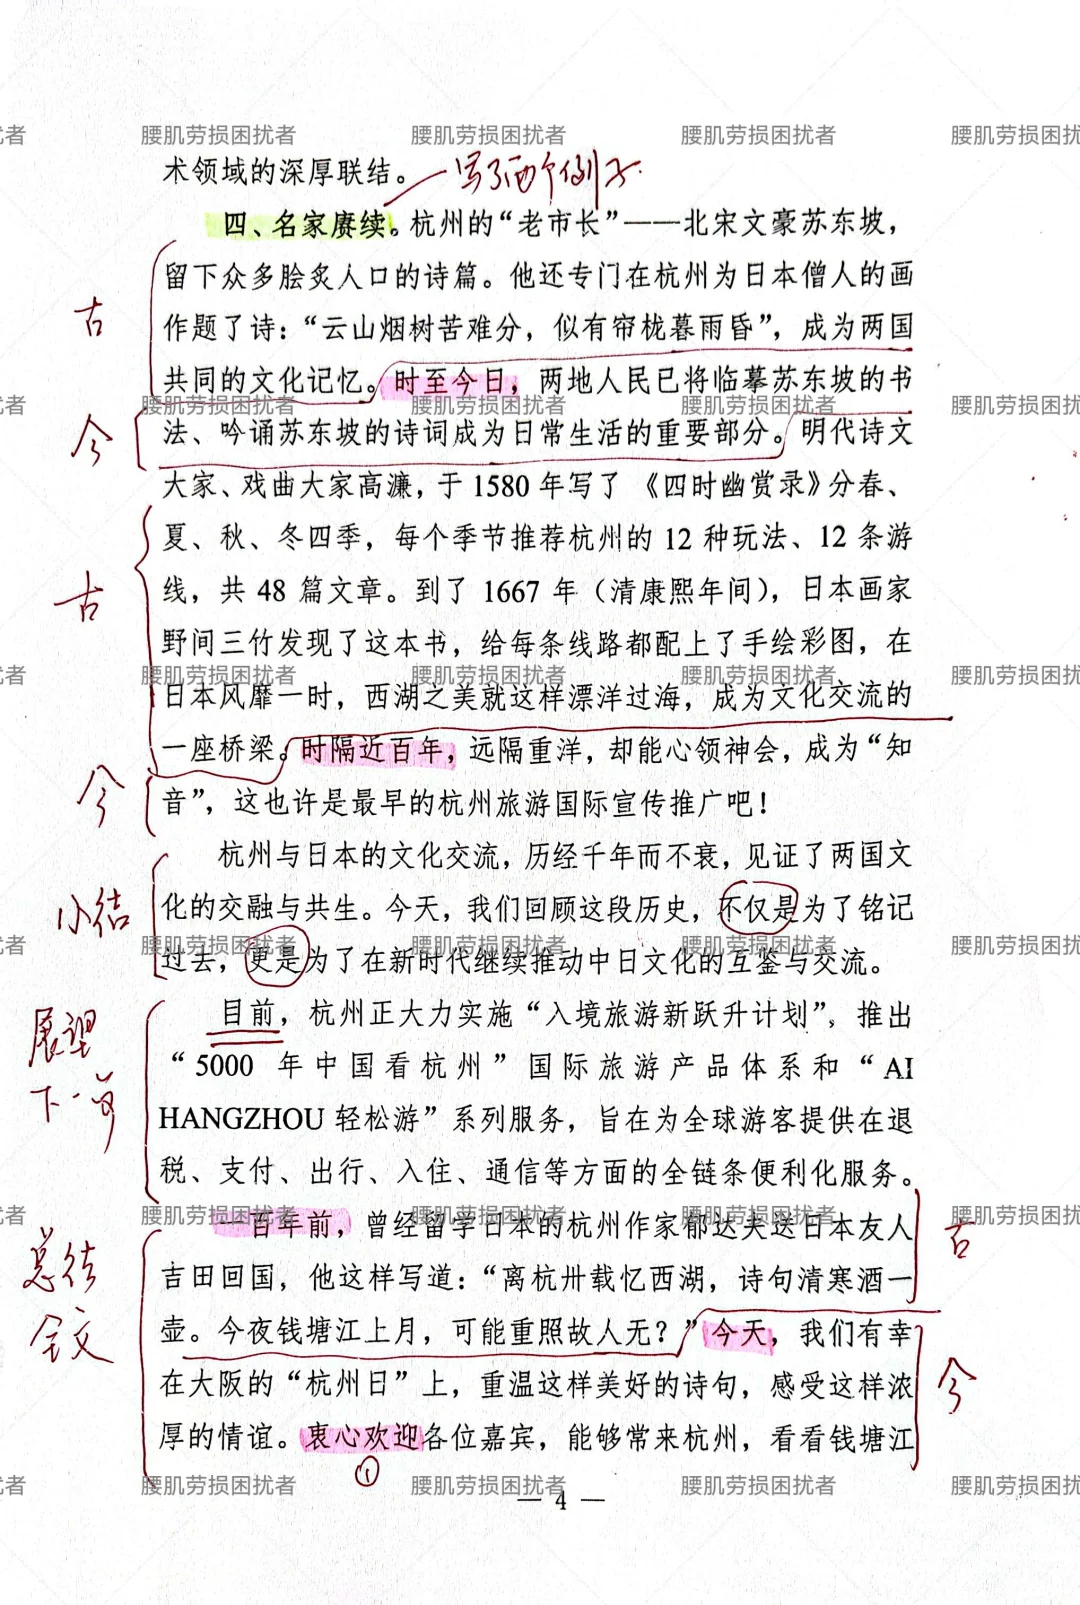 术领域的深厚联结。 写了两个例子.
四、名家赓续。杭州的“老市长”——北宋文豪苏东坡，
留下众多脍炙人口的诗篇。他还专门在杭州为日本僧人的画
作题了诗：“云山烟树苦难分，似有帘栊暮雨昏”，成为两国
古
共同的文化记忆。时至今日，两地人民已将临摹苏东坡的书
法、吟诵苏东坡的诗词成为日常生活的重要部分。明代诗文
今
大家、戏曲大家高濂，于 1580 年写了《四时幽赏录》分春、
夏、秋、冬四季，每个季节推荐杭州的 12 种玩法、12 条游
线，共 48 篇文章。到了 1667 年（清康熙年间），日本画家
古
野间三竹发现了这本书，给每条线路都配上了手绘彩图，在
日本风靡一时，西湖之美就这样漂洋过海，成为文化交流的
一座桥梁。时隔近百年，远隔重洋，却能心领神会，成为“知
今
音”，这也许是最早的杭州旅游国际宣传推广吧！
杭州与日本的文化交流，历经千年而不衰，见证了两国文
化的交融与共生。今天，我们回顾这段历史，不仅是为了铭记
小结
过去，更是为了在新时代继续推动中日文化的互鉴与交流。
目前，杭州正大力实施“入境旅游新跃升计划”，推出
展望
“5000 年中国看杭州”国际旅游产品体系和“AI
下一步
HANGZHOU 轻松游”系列服务，旨在为全球游客提供在退
税、支付、出行、入住、通信等方面的全链条便利化服务。
一百年前，曾经留学日本的杭州作家郁达夫送日本友人
古
总结
吉田回国，他这样写道：“离杭卅载忆西湖，诗句清寒酒一
全文
壶。今夜钱塘江上月，可能重照故人无？”今天，我们有幸
在大阪的“杭州日”上，重温这样美好的诗句，感受这样浓
今
厚的情谊。衷心欢迎各位嘉宾，能够常来杭州，看看钱塘江
①
— 4 —
腰肌劳损困扰者